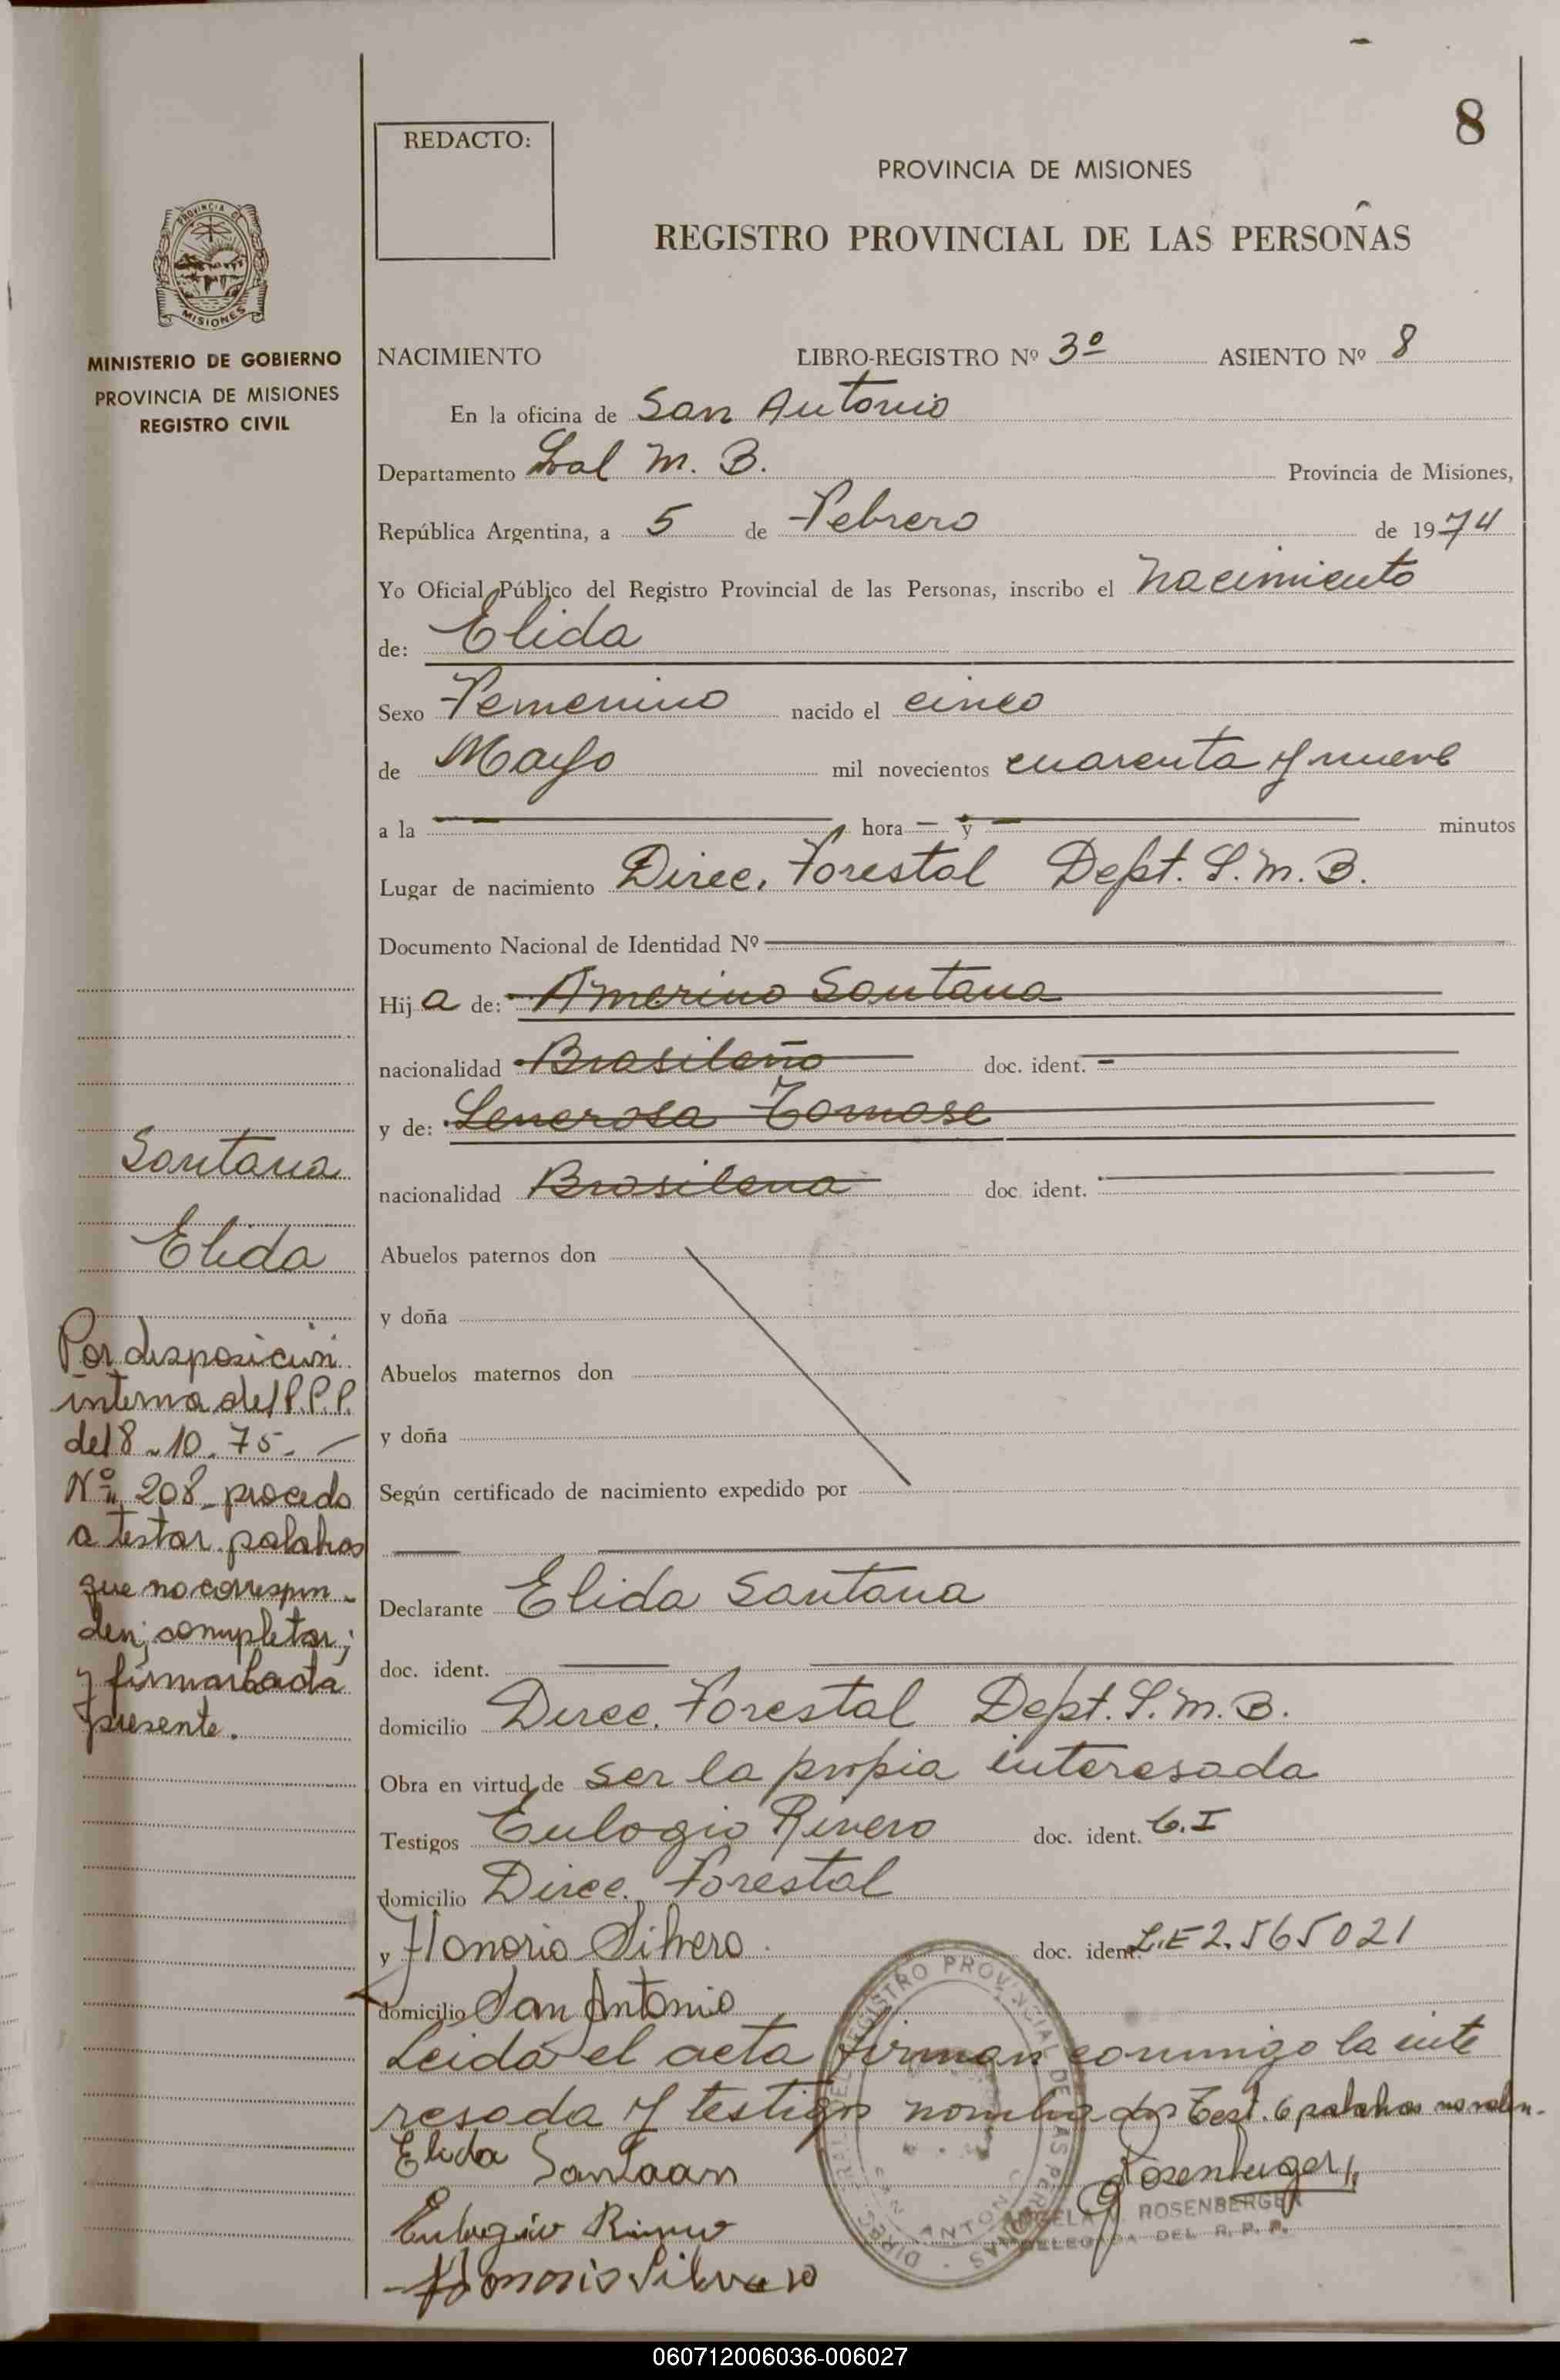 8
REDACTO:
PROVINCIA DE MISIONES
REGISTRO PROVINCIAL DE LAS PERSONAS
PROVINCIA DE
MISIONES
MINISTERIO DE GOBIERNO
PROVINCIA DE MISIONES
REGISTRO CIVIL
NACIMIENTO LIBRO-REGISTRO Nº 3º ASIENTO Nº 8
En la oficina de San Antonio
Departamento Gral M. B. Provincia de Misiones,
República Argentina, a 5 de Febrero de 1974
Yo Oficial Público del Registro Provincial de las Personas, inscribo el Nacimiento
de: Elida
Sexo Femenino nacido el cinco
de Mayo mil novecientos cuarenta y nueve
a la hora y minutos
Lugar de nacimiento Direc. Forestal Dept. G. M. B.
Documento Nacional de Identidad Nº
Hija de: Amerino Santana
nacionalidad Brasileño doc. ident.
y de: Generosa Tomase
nacionalidad Brasilena doc. ident.
Abuelos paternos don
y doña
Abuelos maternos don
y doña
Según certificado de nacimiento expedido por
Declarante Elida Santana
doc. ident.
domicilio Direc. Forestal Dept. G. M. B.
Obra en virtud de ser la propia interesada
Testigos Eulogio Rivero doc. ident. C.I
domicilio Direc. Forestal
y Honorio Silvero doc. ident. L.E 2.565021
domicilio San Antonio
Leida el acta firman conmigo la inte
resada y testigos nombrados Test. 6 palabras no valen.
Elida Santaan
Eulogio Rivero
Honorio Silvero
Rosenberger
ANGELA ROSENBERGER
DELEGADA DEL R. P. P.
Santana
Elida
Por disposicion
interna del R.P.P.
del 8-10-75-
Nº 208 procedo
a testar palabras
que no correspon-
den; completar;
y firmar la acta
presente.
060712006036-006027